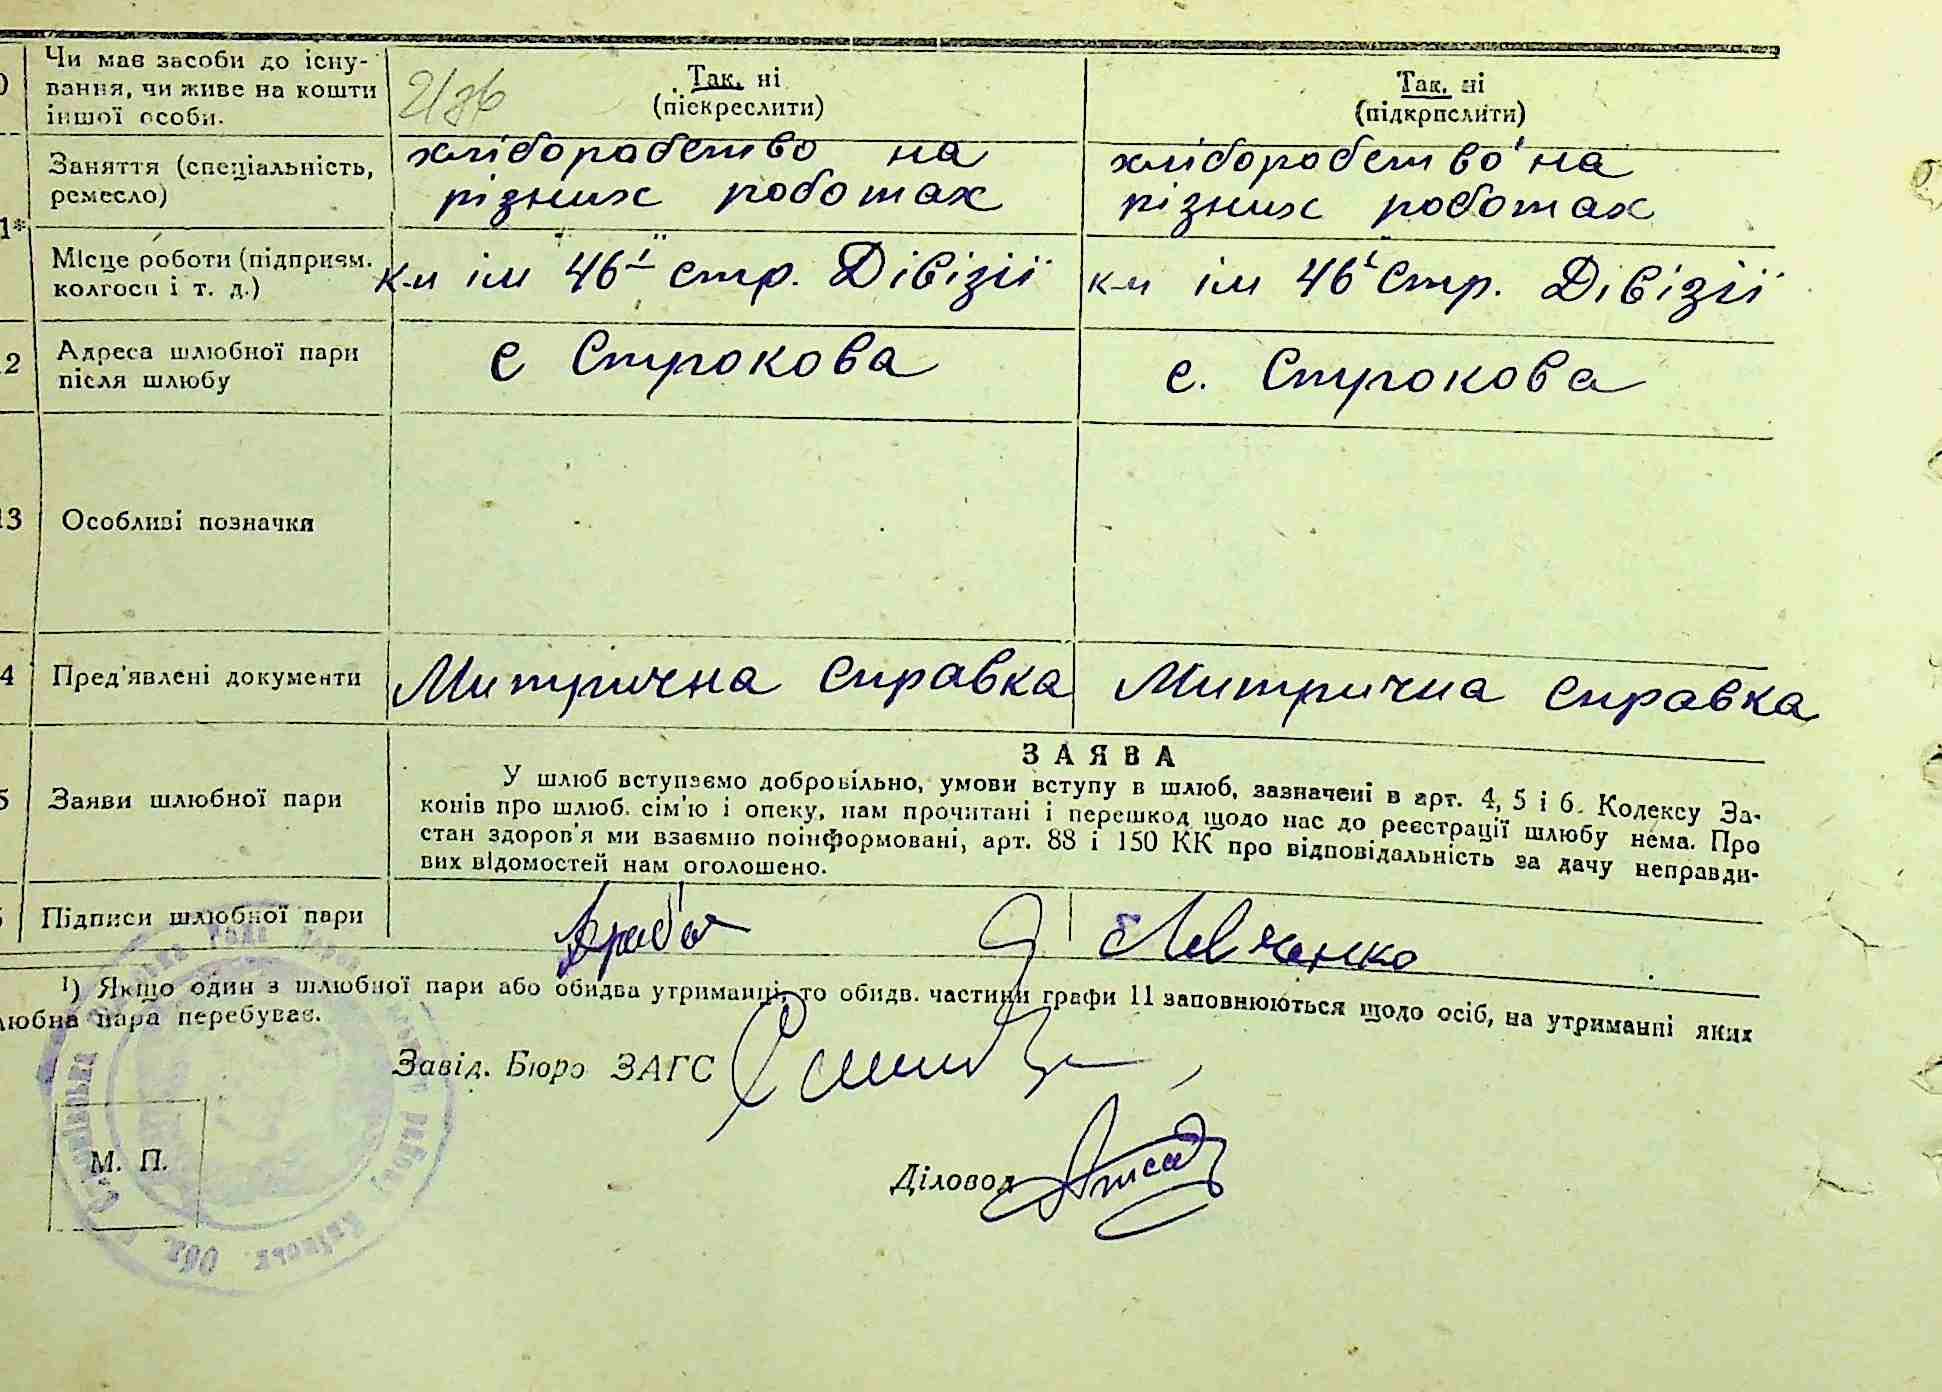 Чи має засоби до існу-
вання, чи живе на кошти
іншої особи.
Так, ні
(підкреслити)
Так, ні
(підкрпслити)
Заняття (спеціальність,
ремесло)
хліборобство на
різних роботах
хліборобство на
різних роботах
1*
Місце роботи (підприєм.
колгосп і т. д.)
к-п ім "46ї" стр. Дівізії
к-п ім 46ї Стр. Дівізії
2
Адреса шлюбної пари
після шлюбу
с Строкова
с. Строкова
13
Особливі позначки
4
Пред'явлені документи
Митрична справка
Митрична справка
5
Заяви шлюбної пари
ЗАЯВА
У шлюб вступаємо добровільно, умови вступу в шлюб, зазначені в арт. 4, 5 і 6. Кодексу За-
конів про шлюб, сім'ю і опеку, нам прочитані і перешкод щодо нас до реєстрації шлюбу нема. Про
стан здоров'я ми взаємно поінформовані, арт. 88 і 150 КК про відповідальність за дачу неправди-
вих відомостей нам оголошено.
Підписи шлюбної пари
Левченко
¹) Якщо один з шлюбної пари або обидва утриманці, то обидв. частини графи 11 заповнюються щодо осіб, на утриманні яких
любна пара перебуває.
Завід. Бюро ЗАГС
М. П.
Діловод